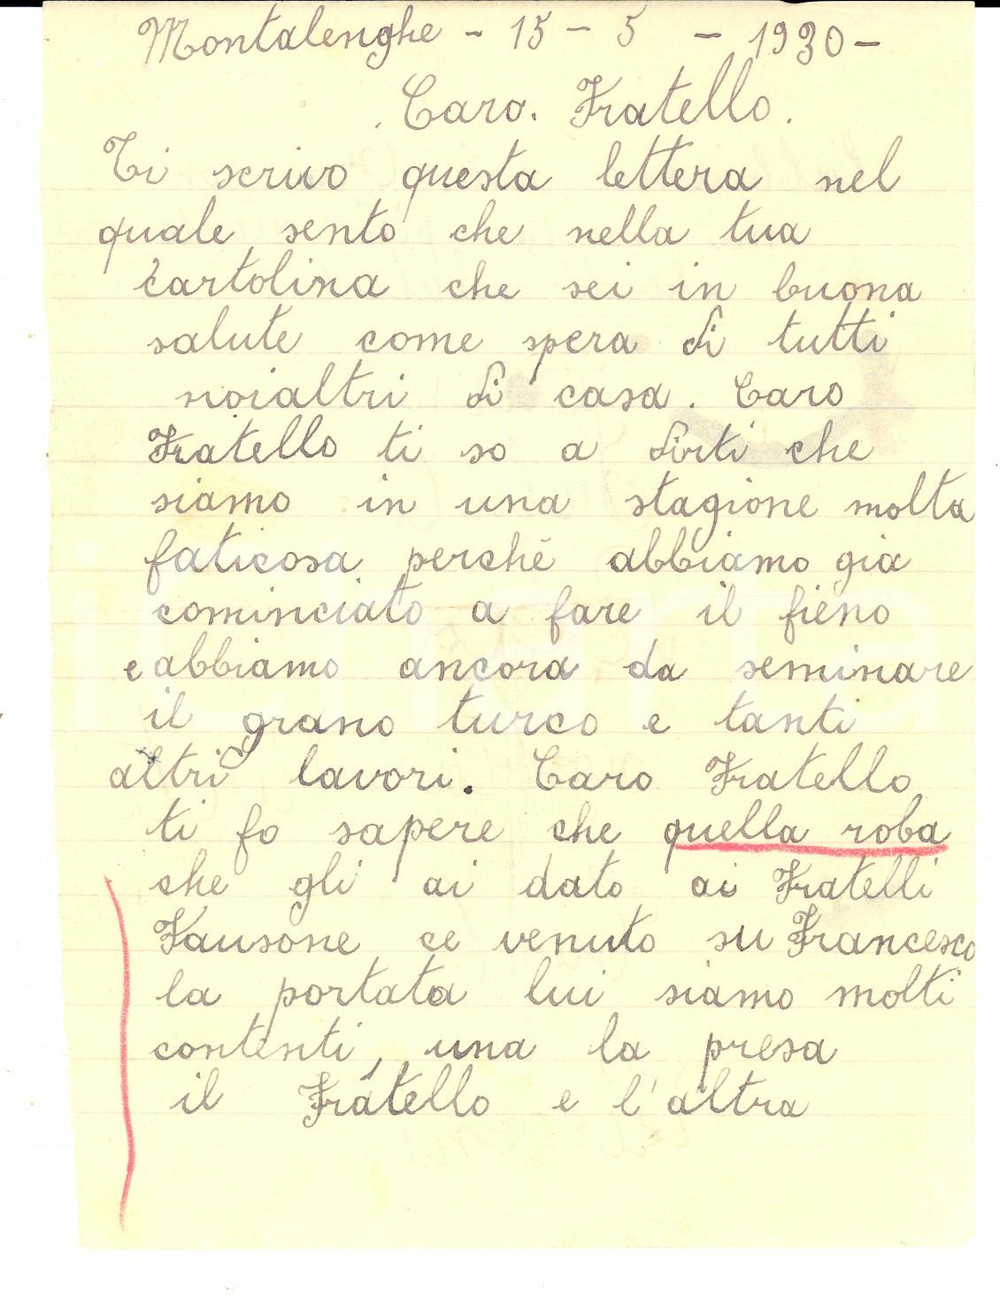 Montalenghe - 15 - 5 - 1930 -
Caro. Fratello.
Ti scrivo questa lettera nel
quale sento che nella tua
cartolina che sei in buona
salute come spera di tutti
noialtri di casa. Caro
Fratello ti so a dirti che
siamo in una stagione molta
faticosa perchè abbiamo già
cominciato a fare il fieno
e abbiamo ancora da seminare
il grano turco e tanti
altri lavori. Caro Fratello
ti fo sapere che quella roba
che gli ai dato ai Fratelli
Fausone ce venuto su Francesco
la portata lui siamo molti
contenti, una la presa
il Fratello e l'altra